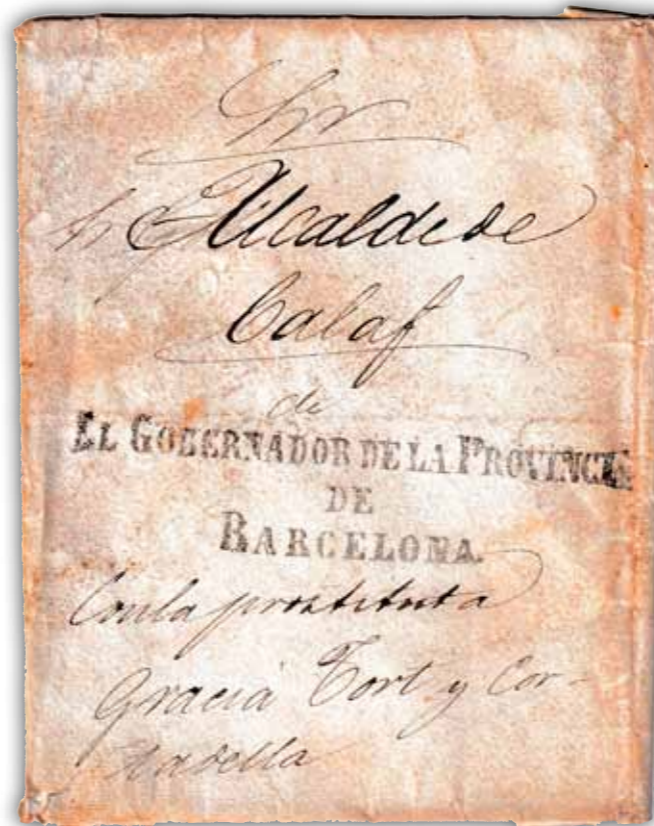 Sor
Alcalde de
Calaf
de
EL GOBERNADOR DE LA PROVINCIA
DE
BARCELONA.
Con la prostituta
Gracia Tort y Cor-